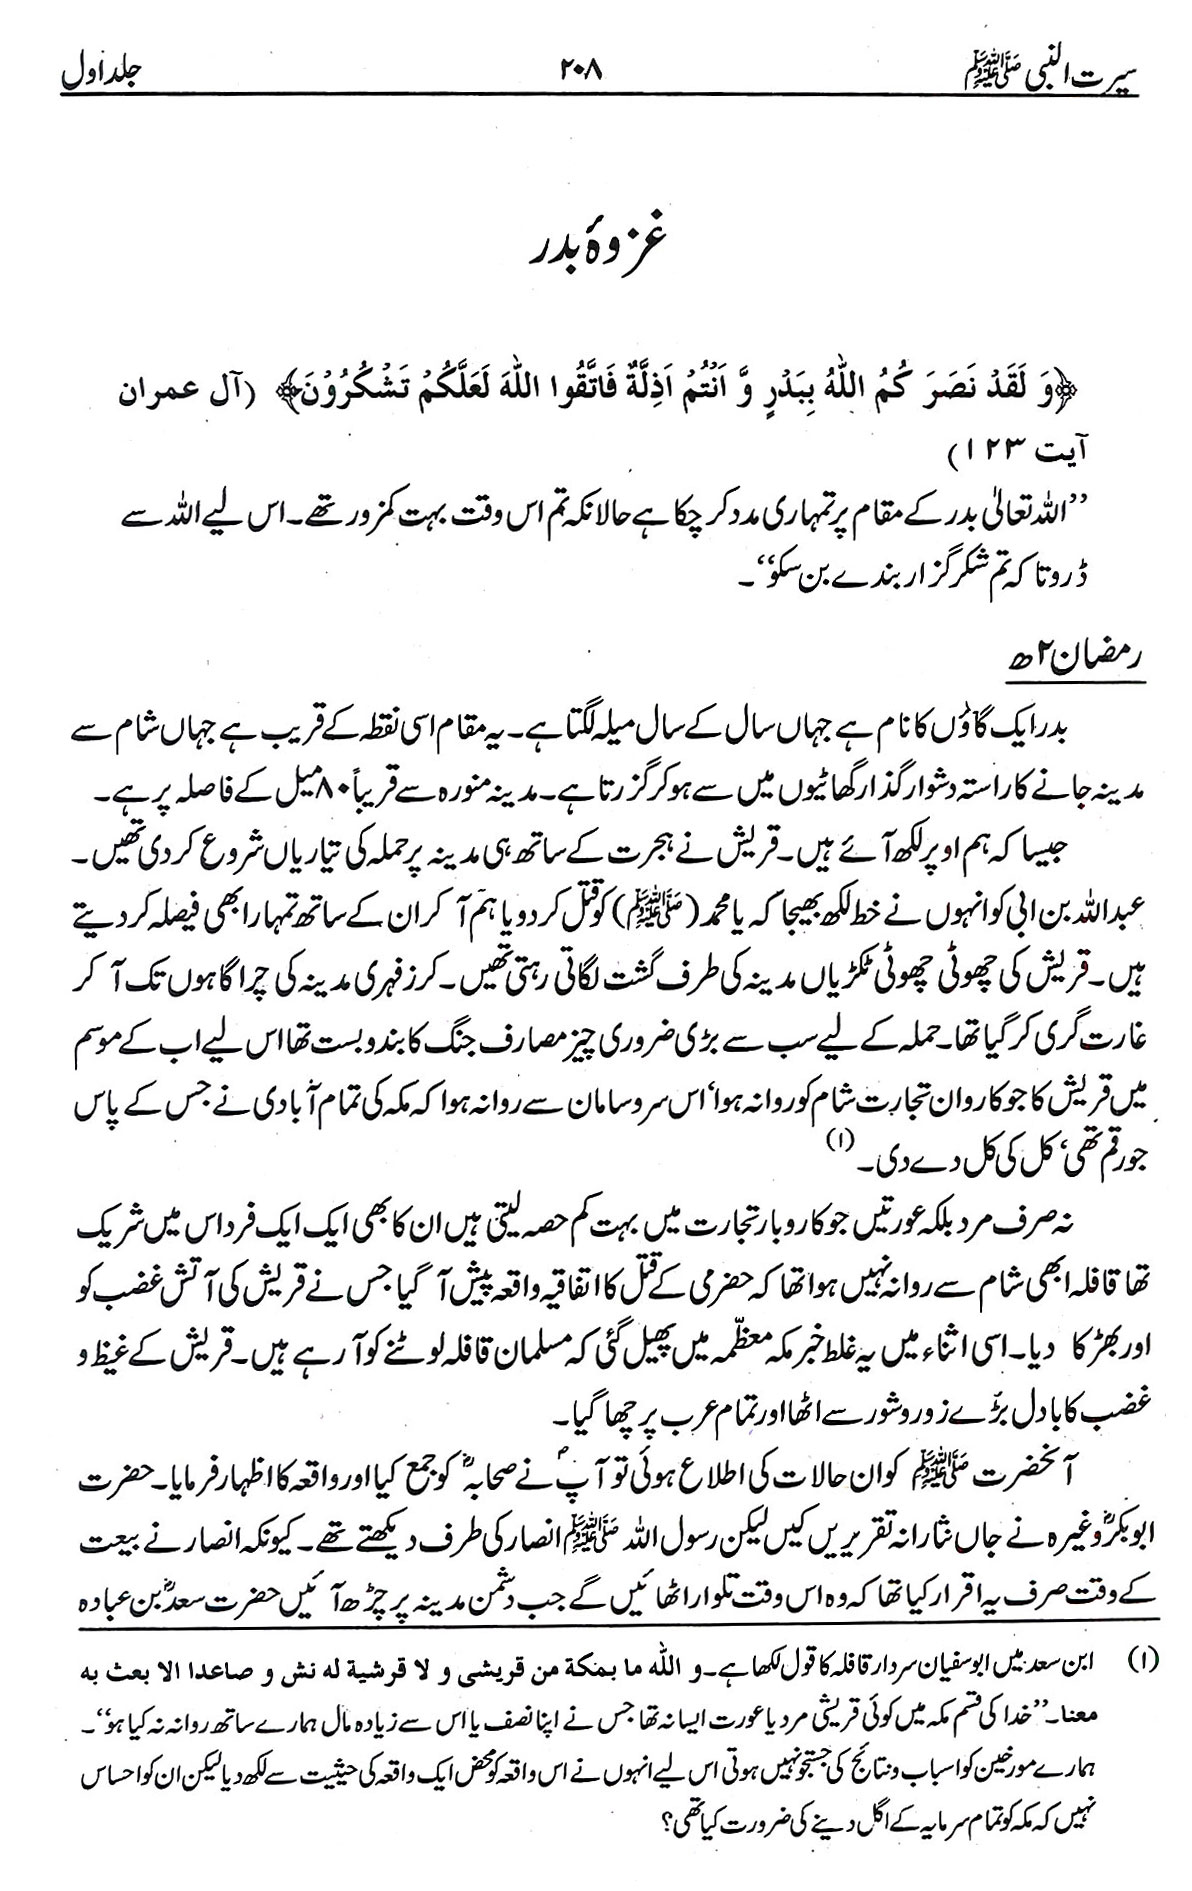 سیرت النبی ﷺ ۲۰۸ جلد اول
غزوۂ بدر
﴿وَ لَقَدْ نَصَرَ كُمُ اللّٰهُ بِبَدْرٍ وَّ اَنْتُمْ اَذِلَّةٌ فَاتَّقُوا اللّٰهَ لَعَلَّكُمْ تَشْكُرُوْنَ﴾ (آل عمران
آیت ۱۲۳)
’’اللہ تعالیٰ بدر کے مقام پر تمہاری مدد کر چکا ہے حالانکہ تم اس وقت بہت کمزور تھے۔ اس لیے اللہ سے
ڈرو تا کہ تم شکر گزار بندے بن سکو‘‘۔
رمضان ۲ھ
بدر ایک گاؤں کا نام ہے جہاں سال کے سال میلہ لگتا ہے۔ یہ مقام اسی نقطہ کے قریب ہے جہاں شام سے
مدینہ جانے کا راستہ دشوار گذار گھاٹیوں میں سے ہو کر گزرتا ہے۔ مدینہ منورہ سے قریباً ۸۰ میل کے فاصلہ پر ہے۔
جیسا کہ ہم اوپر لکھ آئے ہیں۔ قریش نے ہجرت کے ساتھ ہی مدینہ پر حملہ کی تیاریاں شروع کر دی تھیں۔
عبداللہ بن ابی کو انہوں نے خط لکھ بھیجا کہ یا محمد (ﷺ) کو قتل کر دو یا ہم آ کر ان کے ساتھ تمہارا بھی فیصلہ کر دیتے
ہیں۔ قریش کی چھوٹی چھوٹی ٹکڑیاں مدینہ کی طرف گشت لگاتی رہتی تھیں۔ کرز فہری مدینہ کی چراگاہوں تک آ کر
غارت گری کر گیا تھا۔ حملہ کے لیے سب سے بڑی ضروری چیز مصارف جنگ کا بندوبست تھا اس لیے اب کے موسم
میں قریش کا جو کاروان تجارت شام کو روانہ ہوا‘ اس سروسامان سے روانہ ہوا کہ مکہ کی تمام آبادی نے جس کے پاس
جو رقم تھی‘ کل کی کل دے دی۔ (۱)
نہ صرف مرد بلکہ عورتیں جو کاروبار تجارت میں بہت کم حصہ لیتی ہیں ان کا بھی ایک ایک فرد اس میں شریک
تھا قافلہ ابھی شام سے روانہ نہیں ہوا تھا کہ حضرمی کے قتل کا اتفاقیہ واقعہ پیش آ گیا جس نے قریش کی آتش غضب کو
اور بھڑکا دیا۔ اسی اثناء میں یہ غلط خبر مکہ معظّمہ میں پھیل گئی کہ مسلمان قافلہ لوٹنے کو آ رہے ہیں۔ قریش کے غیظ و
غضب کا بادل بڑے زور و شور سے اٹھا اور تمام عرب پر چھا گیا۔
آنحضرت ﷺ کو ان حالات کی اطلاع ہوئی تو آپؐ نے صحابہؓ کو جمع کیا اور واقعہ کا اظہار فرمایا۔ حضرت
ابوبکرؓ وغیرہ نے جاں نثارانہ تقریریں کیں لیکن رسول اللہ ﷺ انصار کی طرف دیکھتے تھے۔ کیونکہ انصار نے بیعت
کے وقت صرف یہ اقرار کیا تھا کہ وہ اس وقت تلوار اٹھائیں گے جب دشمن مدینہ پر چڑھ آئیں حضرت سعدؓ بن عبادہ
(۱) ابن سعد میں ابوسفیان سردار قافلہ کا قول لکھا ہے۔ و الله ما بمكة من قريشى و لا قرشية له نش و صاعدا الا بعث به
معنا۔ ’’خدا کی قسم مکہ میں کوئی قریشی مرد یا عورت ایسا نہ تھا جس نے اپنا نصف یا اس سے زیادہ مال ہمارے ساتھ روانہ نہ کیا ہو‘‘۔
ہمارے مورخین کو اسباب و نتائج کی جستجو نہیں ہوتی اس لیے انہوں نے اس واقعہ کو محض ایک واقعہ کی حیثیت سے لکھ دیا لیکن ان کو احساس
نہیں کہ مکہ کو تمام سرمایہ کے اگل دینے کی ضرورت کیا تھی؟